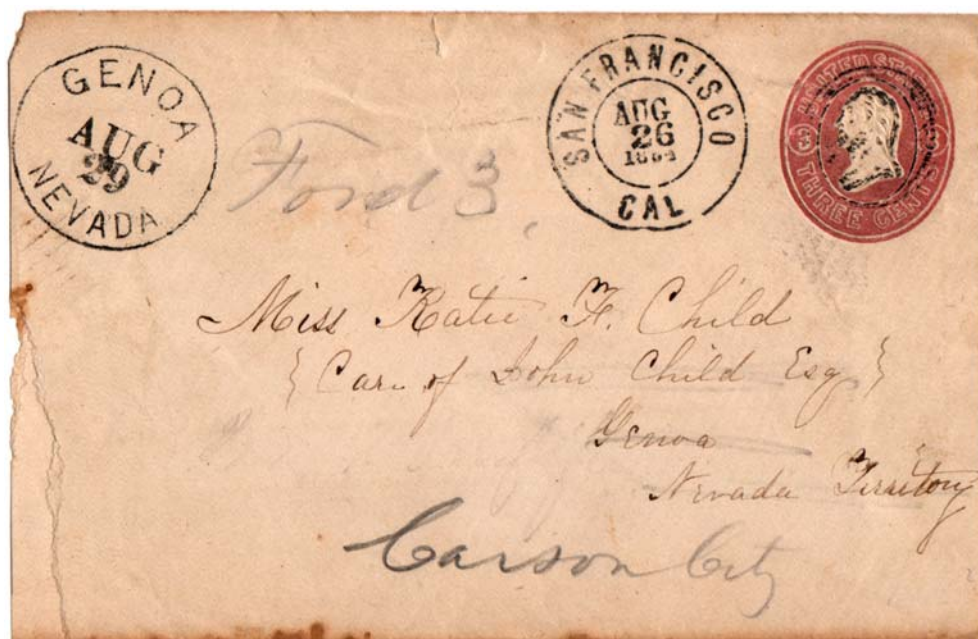 GENOA
AUG
29
NEVADA
SAN FRANCISCO
AUG
26
CAL
UNITED STATES
3
THREE CENTS
Miss Katie F. Child
{ Care of John Child Esq }
Genoa
Nevada Territory
Carson City